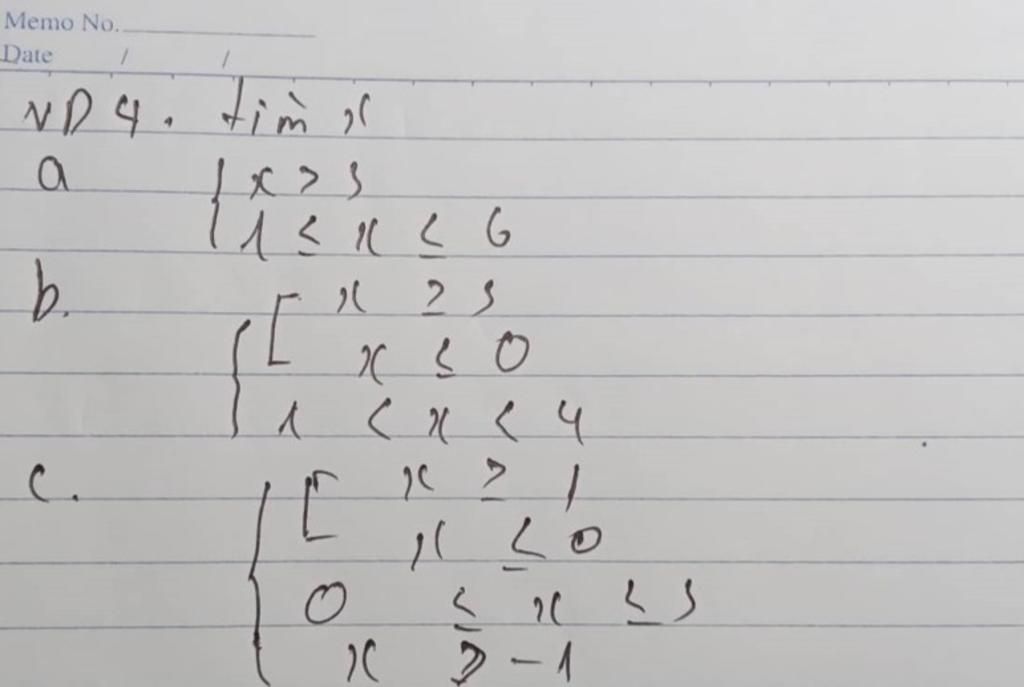 Memo No.
Date / /
VD 4. tìm x
a { x > 3
1 ≤ x ≤ 6
b. { [ x ≥ 3
x ≤ 0
1 < x < 4
c. { [ x ≥ 1
x ≤ 0
0 ≤ x ≤ 3
x ≥ -1